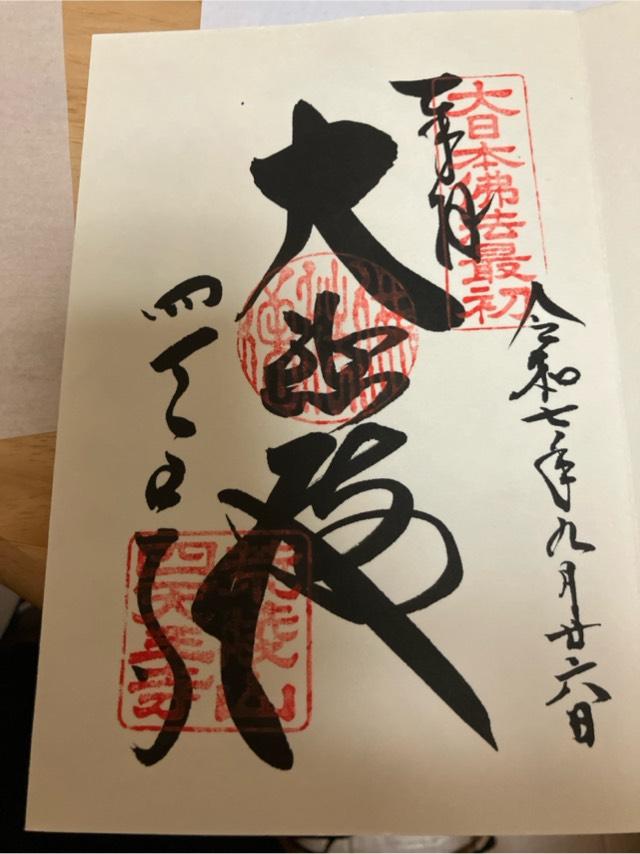 奉拝
大日本佛法最初
令和七年九月廿六日
大悲殿
四天王寺
荒陵山
四天王寺